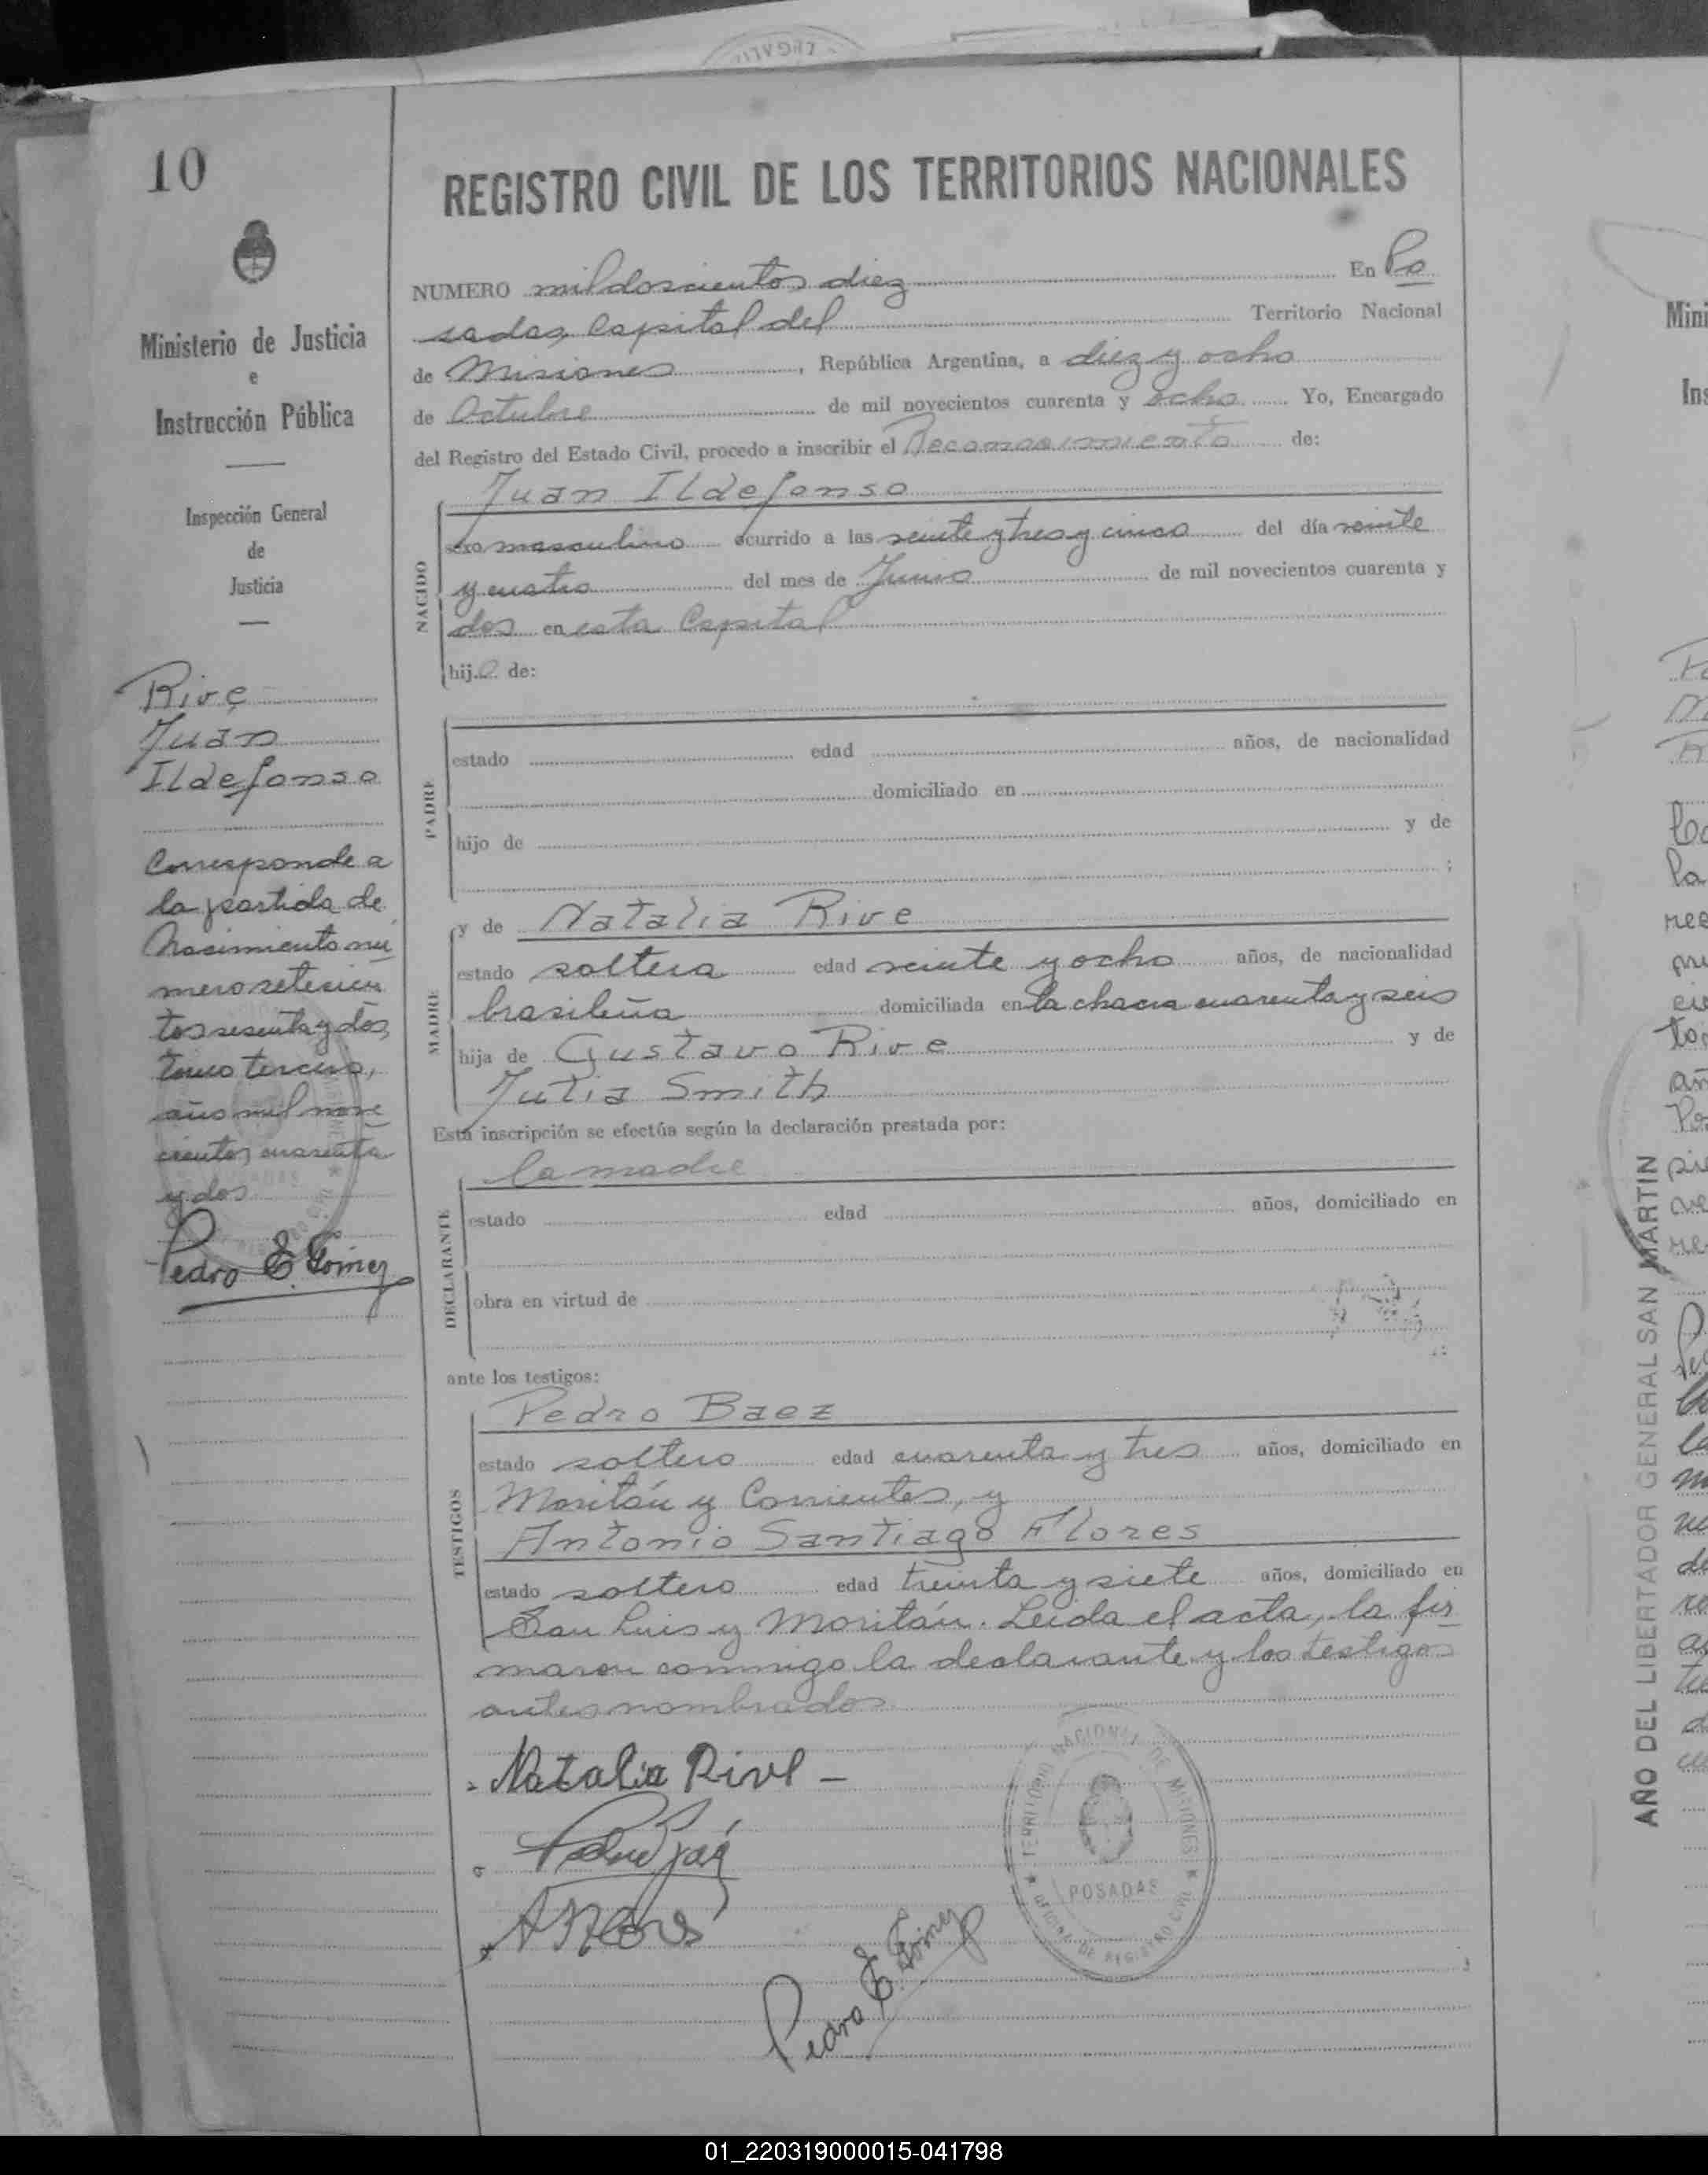 10
REGISTRO CIVIL DE LOS TERRITORIOS NACIONALES
Ministerio de Justicia
e
Instrucción Pública
Inspección General
de
Justicia
Rive
Juan
Ildefonso
Corresponde a
la partida de
Nacimiento nu
mero setecien
tos sesenta y dos,
tomo tercero,
año mil nove
cientos cuarenta
y dos
Pedro E. Gómez
NUMERO mil doscientos diez En Po
sadas, Capital del Territorio Nacional
de Misiones, República Argentina, a diez y ocho
de Octubre de mil novecientos cuarenta y ocho Yo, Encargado
del Registro del Estado Civil, procedo a inscribir el Reconocimiento de:
Juan Ildefonso
NACIDO
sexo masculino ocurrido a las veinte y tres y cinco del día veinte
y cuatro del mes de Junio de mil novecientos cuarenta y
dos en esta Capital
hijo de:
PADRE
estado edad años, de nacionalidad
domiciliado en
hijo de y de
;
MADRE
y de Natalia Rive
estado soltera edad veinte y ocho años, de nacionalidad
brasileña domiciliada en la chacra cuarenta y seis
hija de Gustavo Rive y de
Julia Smith
Esta inscripción se efectúa según la declaración prestada por:
la madre
DECLARANTE
estado edad años, domiciliado en
obra en virtud de
ante los testigos:
TESTIGOS
Pedro Baez
estado soltero edad cuarenta y tres años, domiciliado en
Moritán y Corrientes, y
Antonio Santiago Flores
estado soltero edad treinta y siete años, domiciliado en
San Luis y Moritán. Leída el acta, la fir
maron conmigo la declarante y los testigos
antes nombrados
Natalia Rive
Pedro Baez
AFlores
Pedro E. Gómez
TERRITORIO NACIONAL DE MISIONES
POSADAS
OFICINA DE REGISTRO CIVIL
AÑO DEL LIBERTADOR GENERAL SAN MARTIN
01_220319000015-041798